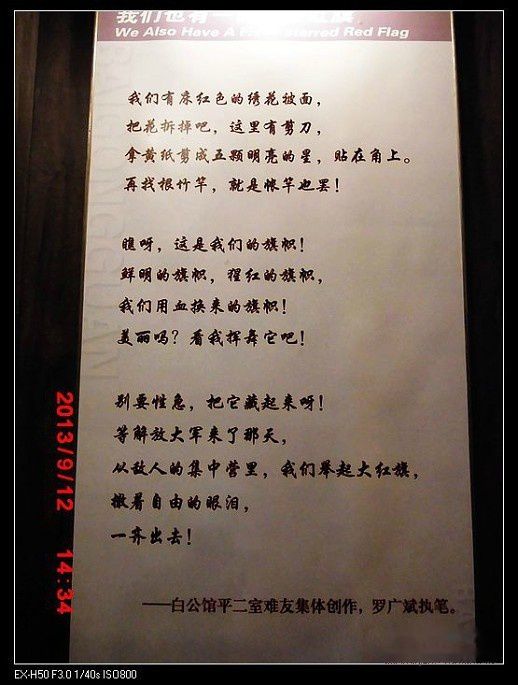 我们也有一
旗
We Also Have A Five-Starred Red Flag
我们有床红色的绣花被面，
把花拆掉吧，这里有剪刀，
拿黄纸剪成五颗明亮的星，贴在角上。
再找根竹竿，就是帐竿也罢！
瞧呀，这是我们的旗帜！
鲜明的旗帜，猩红的旗帜，
我们用血换来的旗帜！
美丽吗？看我挥舞它吧！
别要性急，把它藏起来呀！
等解放大军来了那天，
从敌人的集中营里，我们举起大红旗，
撒着自由的眼泪，
一齐出去！
——白公馆平二室难友集体创作，罗广斌执笔。
2013/9/12 14:34
EX-H50 F3.0 1/40s ISO800